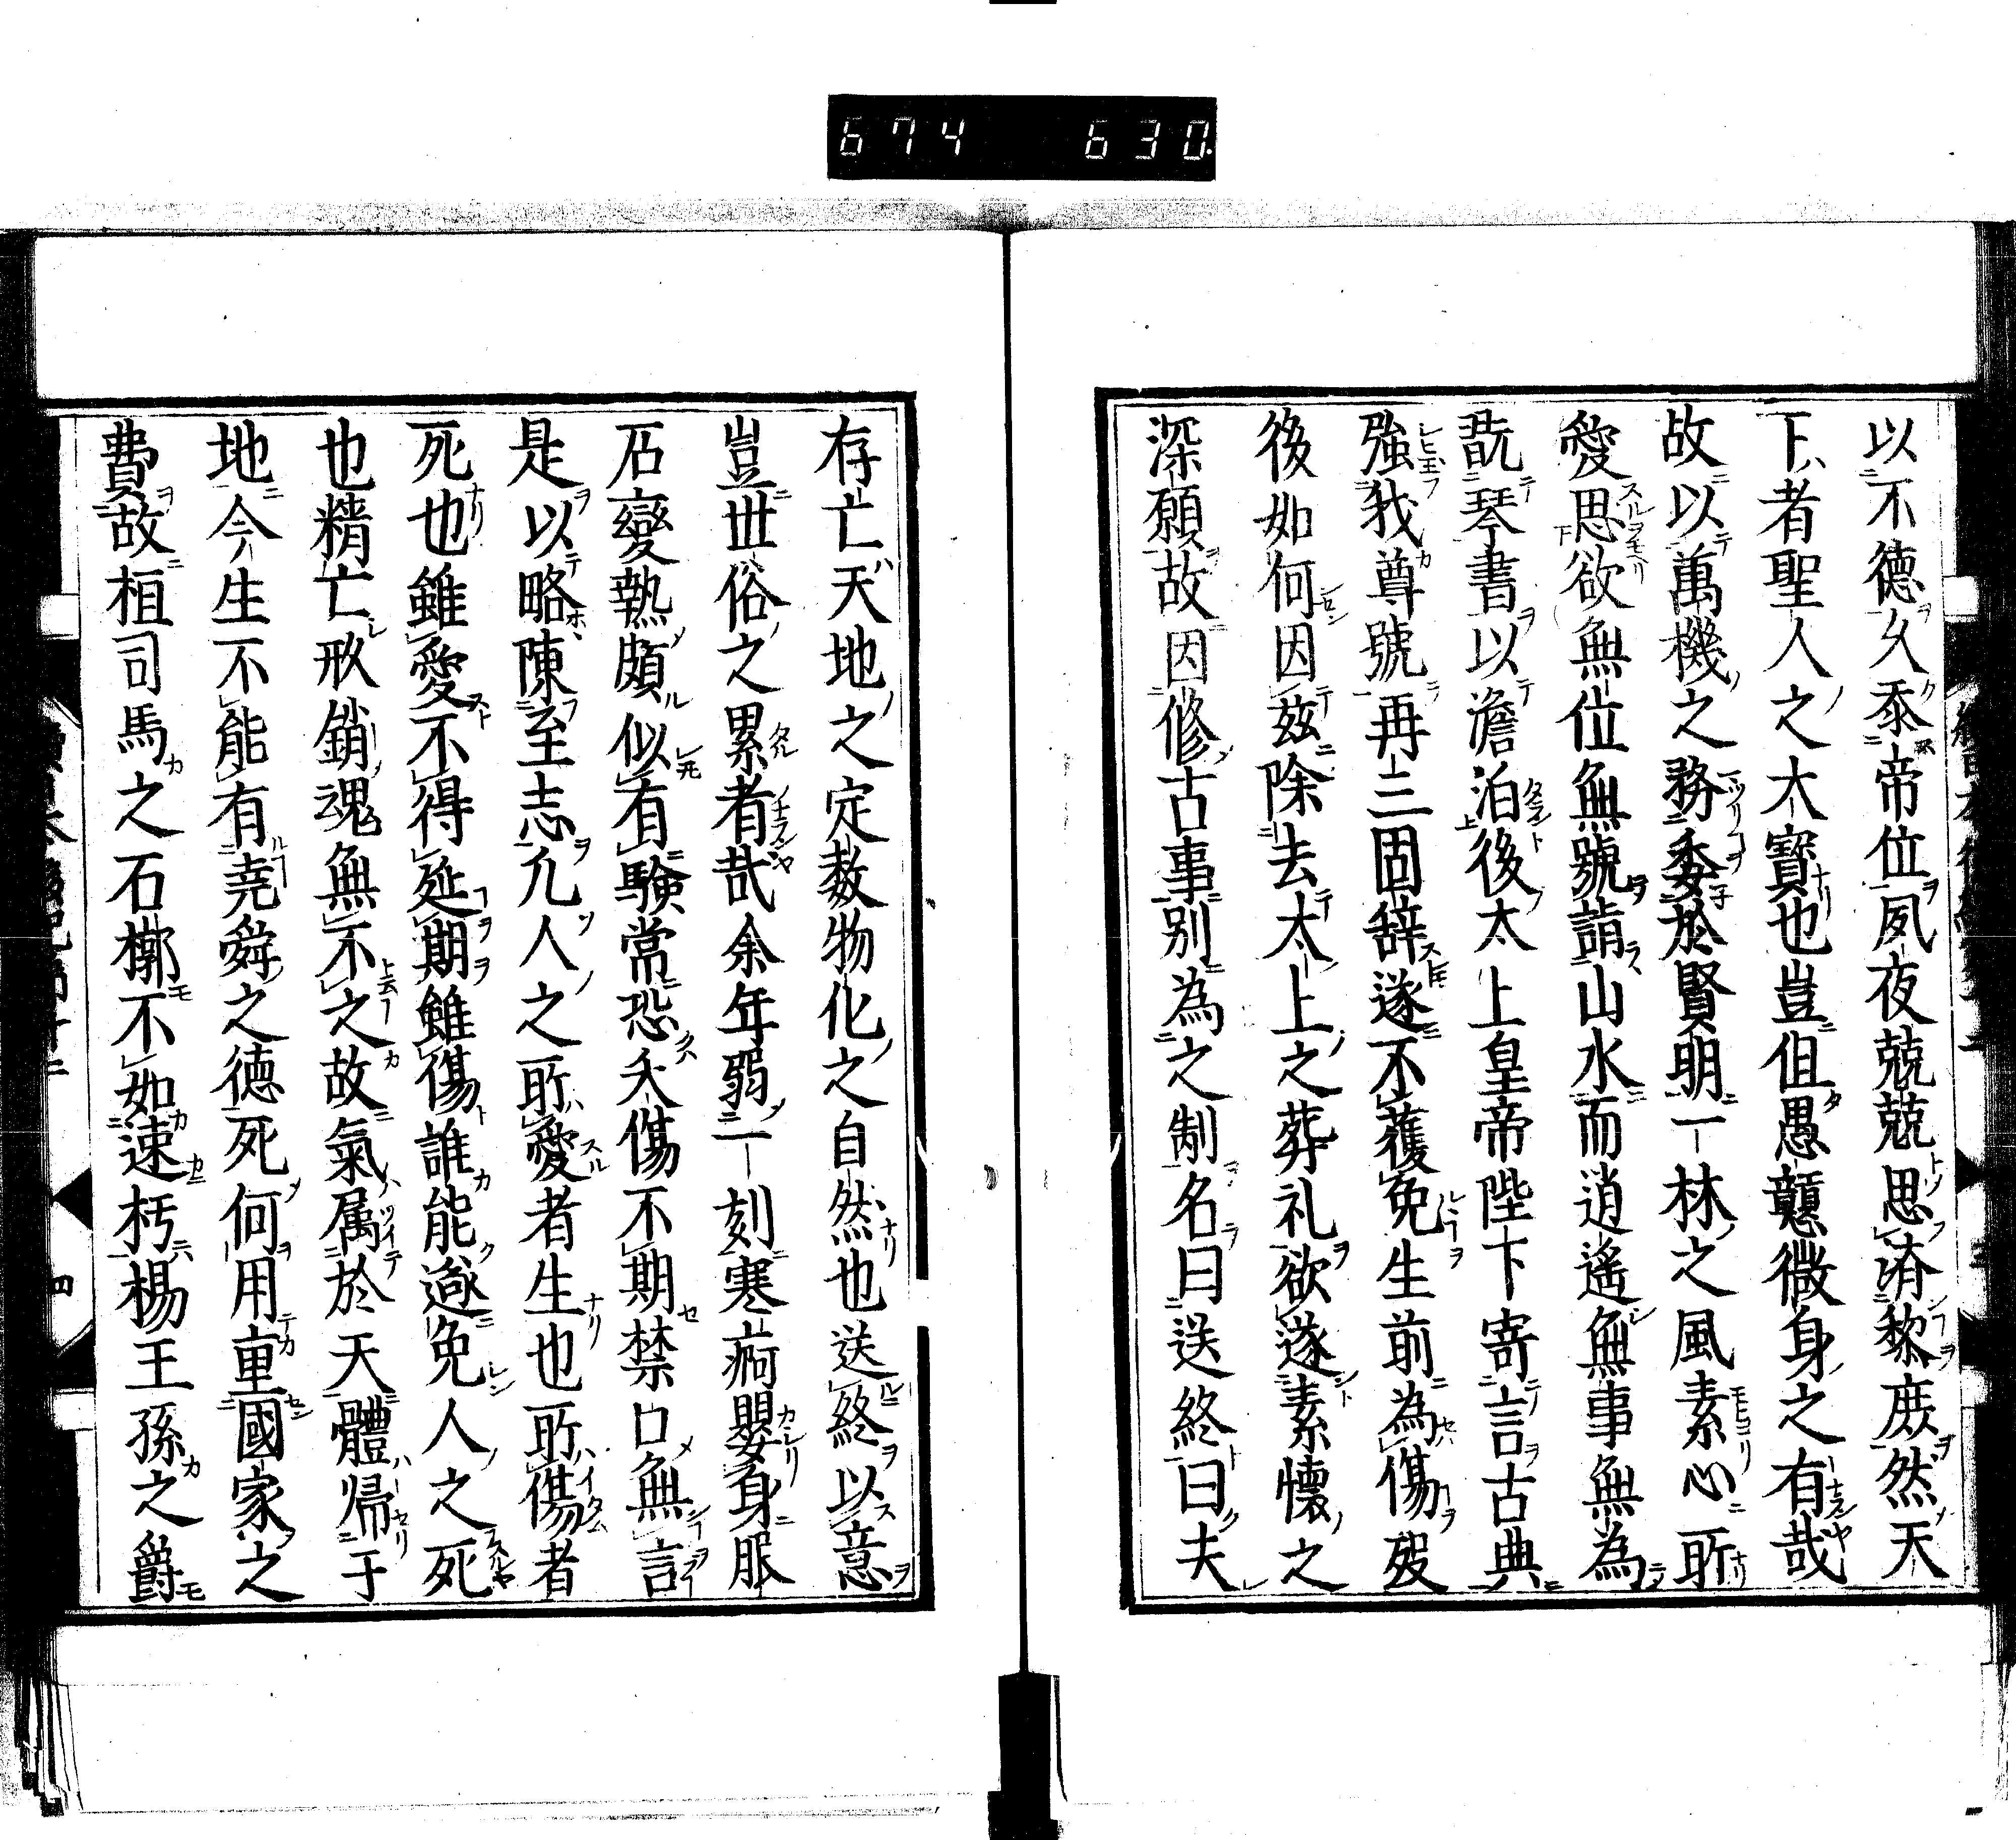 674 630.
以不徳久忝帝位夙夜兢兢思済黎庶然天
下者聖人之大寳也豈但愚戇微身之有哉
故以萬機之務委於賢明一林之風素心所
愛思欲無位無號詣山水而逍遙無事無為
翫琴書以澹泊後太上皇帝陛下寄言古典
強我尊號再三固辞遂不獲免生前為傷歿
後如何因茲除去太上之葬礼欲遂素懐之
深願故因修古事別為之制名曰送終曰夫
存亡天地之定数物化之自然也送終以意
豈世俗之累者哉余年弱二一刻寒痾嬰身服
石變熱頗似有験常恐夭傷不期禁口無言
是以略陳至志凡人之所愛者生也所傷者
死也雖愛不得延期雖傷誰能遁免人之死
也精亡形銷魂無不之故氣属於天體帰于
地今生不能有堯舜之徳死何用重國家之
費故桓司馬之石槨不如速朽楊王孫之爵